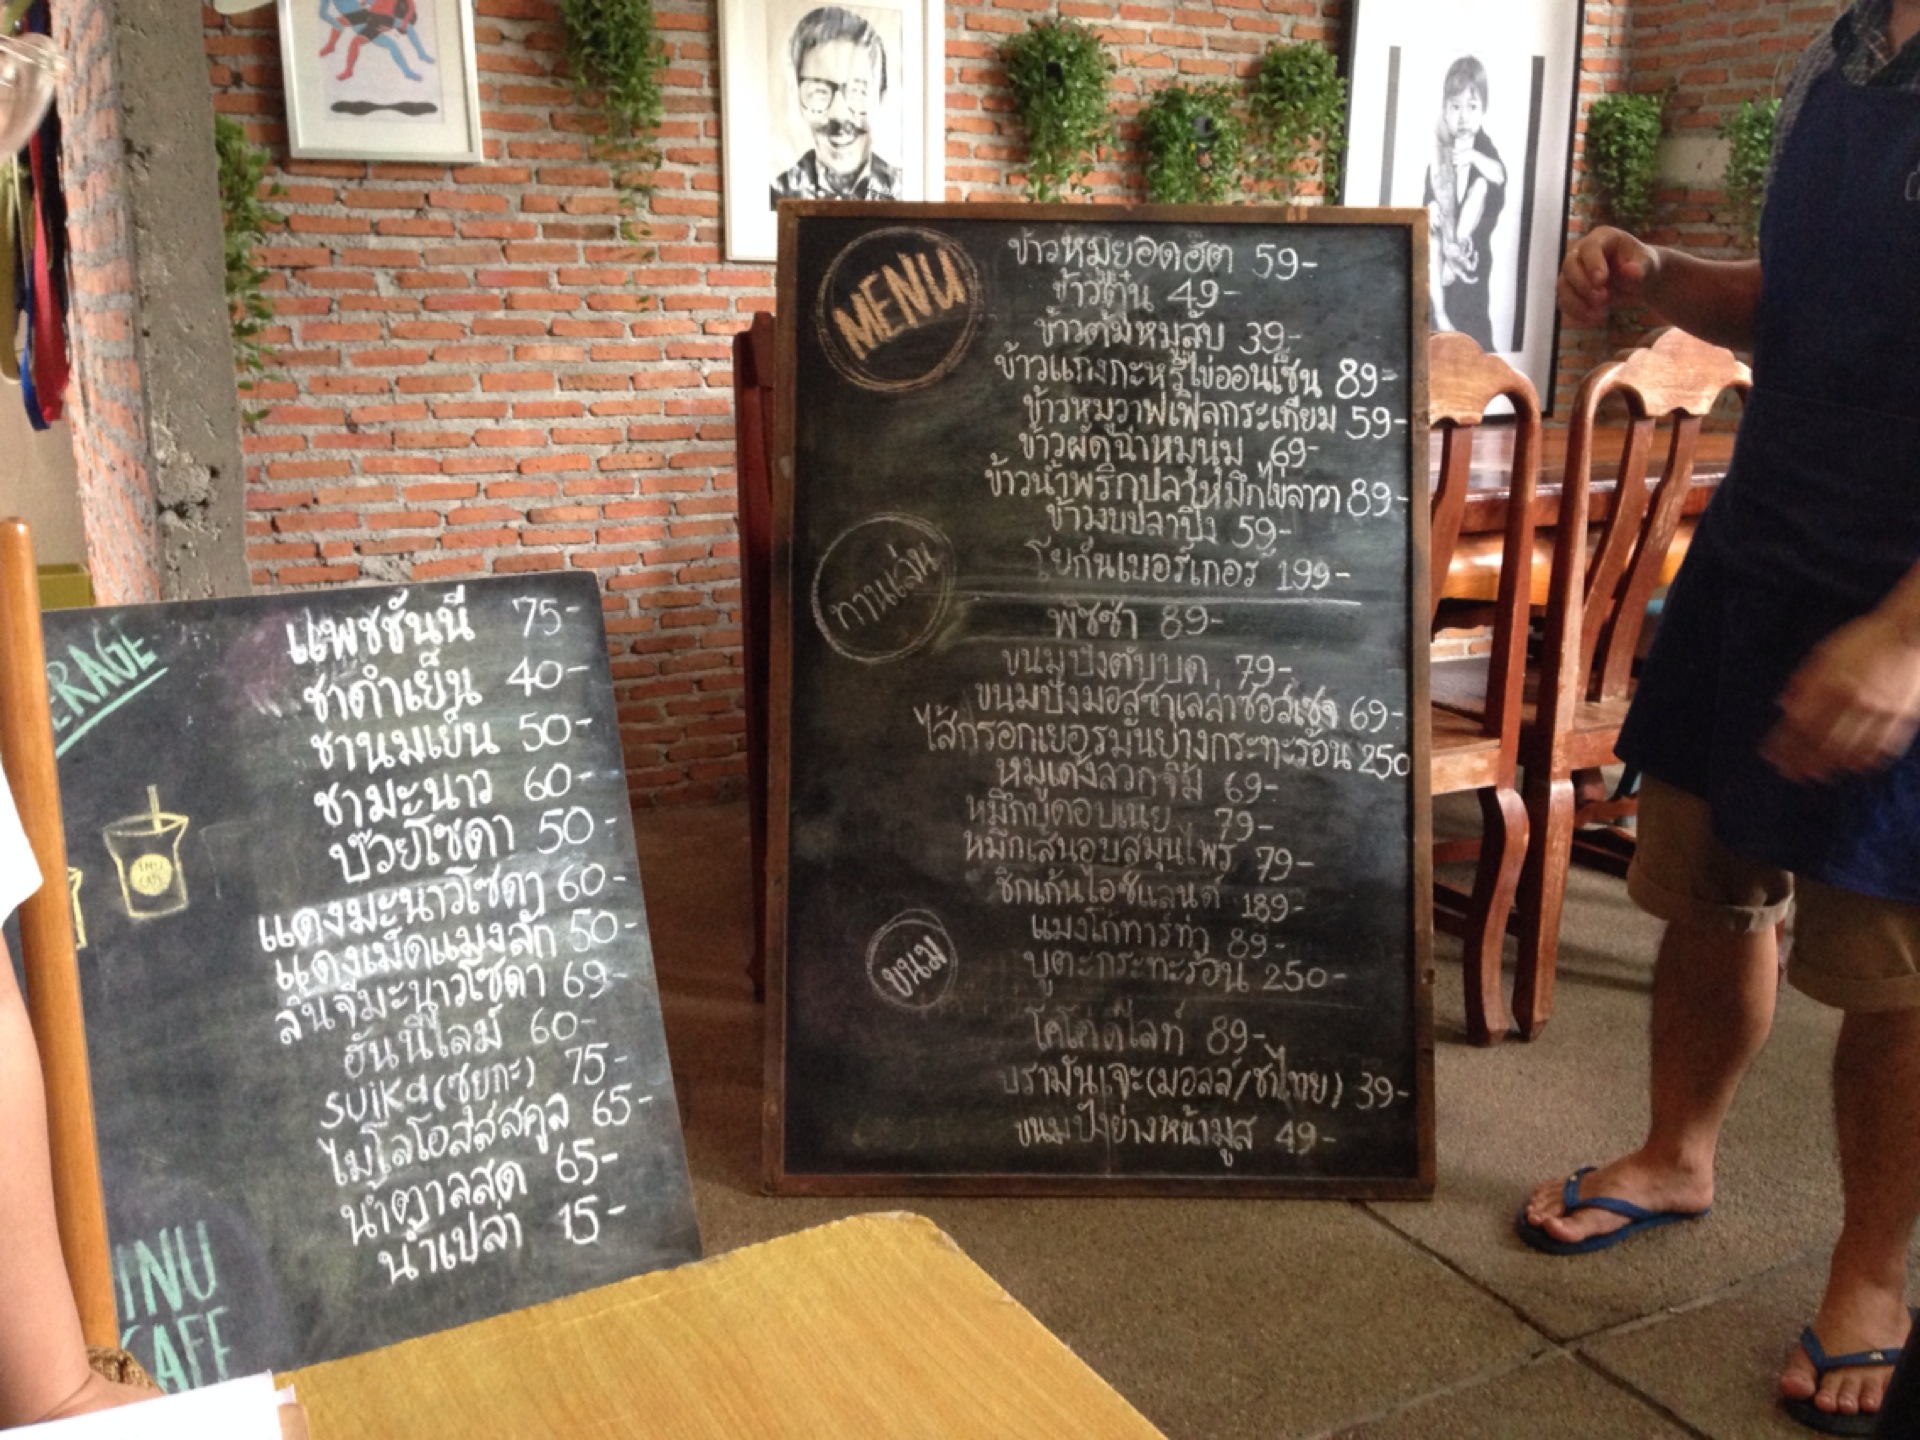 ERAGE
แพชชั่นนี่ 75-
ชาดำเย็น 40-
ชานมเย็น 50-
ชามะนาว 60-
บ๊วยโซดา 50-
แดงมะนาวโซดา 60-
แดงเม็ดแมงลัก 50-
ลิ้นจี่มะนาวโซดา 69-
ฮันนี่ไลม์ 60-
suika (ซุยกะ) 75-
ไมโลโอลด์สคูล 65-
น้ำตาลสด 65-
น้ำเปล่า 15-
INU
CAFE
MENU
ข้าวหมูยอดฮิต 59-
ข้าวตุ๋น 49-
ข้าวต้มหมูสับ 39-
ข้าวแกงกะหรี่ไข่ออนเซ็น 89-
ข้าวหมูวาฟเฟิลกระเทียม 59-
ข้าวผัดฉ่าหมูนุ่ม 69-
ข้าวน้ำพริกปลาหมึกไข่ลาวา 89-
ข้าวงบปลาปิ้ง 59-
โยกันเบอร์เกอร์ 199-
ทานเล่น
พิซซ่า 89-
ขนมปังตับบด 79-
ขนมปังมอสซาเรลล่าซอส 69-
ไส้กรอกเยอรมันย่างกระทะร้อน 250
หมูเด้งลวกจิ้ม 69-
หมึกบดอบเนย 79-
หมึกเส้นอบสมุนไพร 79-
ชิกเก้นไอซ์แลนด์ 189-
แมงโก้ทาร์ท่า 89-
บูตะกระทะร้อน 250-
ขนม
โคโค่ดีไลท์ 89-
บราวน์เจ๊ะ(มอลล์/ชาไทย) 39-
ขนมปังย่างหน้ามูส 49-